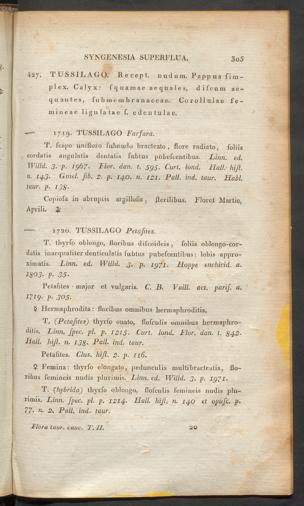 SYNGENESIA SUPERFLUA. 305
427. TUSSILAGO. Recept. nudum. Pappus ſim-
plex. Calyx: ſquamae aequales, diſcum ae-
quantes, ſubmembranaceae. Corollulae fe-
mineae ligulatae ſ. edentulae.
— 1719. TUSSILAGO Farfara.
T. ſcapo unifloro ſubnudo bracteato, flore radiato, foliis
cordatis angulatis dentatis ſubtus pubeſcentibus. Linn. ed.
Willd. 3. p. 1967. Flor. dan. t. 595. Curt. lond. Hall. hiſt.
n. 143. Gmel. ſib. 2. p. 140. n. 121. Pall. ind. taur. Habl.
taur. p. 138.
Copioſa in abruptis argilloſis, ſterilibus. Floret Martio,
Aprili. ♃
— 1720. TUSSILAGO Petaſites.
T. thyrſo oblongo, floribus diſcoideis, foliis oblongo-cor-
datis inaequaliter denticulatis ſubtus pubeſcentibus: lobis appro-
ximatis. Linn. ed. Willd. 3. p. 1971. Hoppe enchirid. a.
1803. p. 35.
Petaſites major et vulgaris. C. B. Vaill. act. pariſ. a.
1719. p. 305.
☿ Hermaphrodita: floribus omnibus hermaphroditis,
T. (Petaſites) thyrſo ovato, floſculis omnibus hermaphro-
ditis. Linn. ſpec. pl. p. 1213. Curt. lond. Flor. dan. t. 842.
Hall. hiſt. n. 138. Pall. ind. taur.
Petaſites. Cluſ. hiſt. 2. p. 116.
♀ Femina: thyrſo elongato, pedunculis multibracteatis, flo-
ribus femineis nudis plurimis. Linn. ed. Willd. 3. p. 1971.
T. (hybrida) thyrſo oblongo, floſculis femineis nudis plu-
rimis. Linn. ſpec. pl. p. 1214. Hall. hiſt. n. 140 et opuſc. p.
77. n. 2. Pall. ind. taur.
Flora taur. cauc. T. II. 20